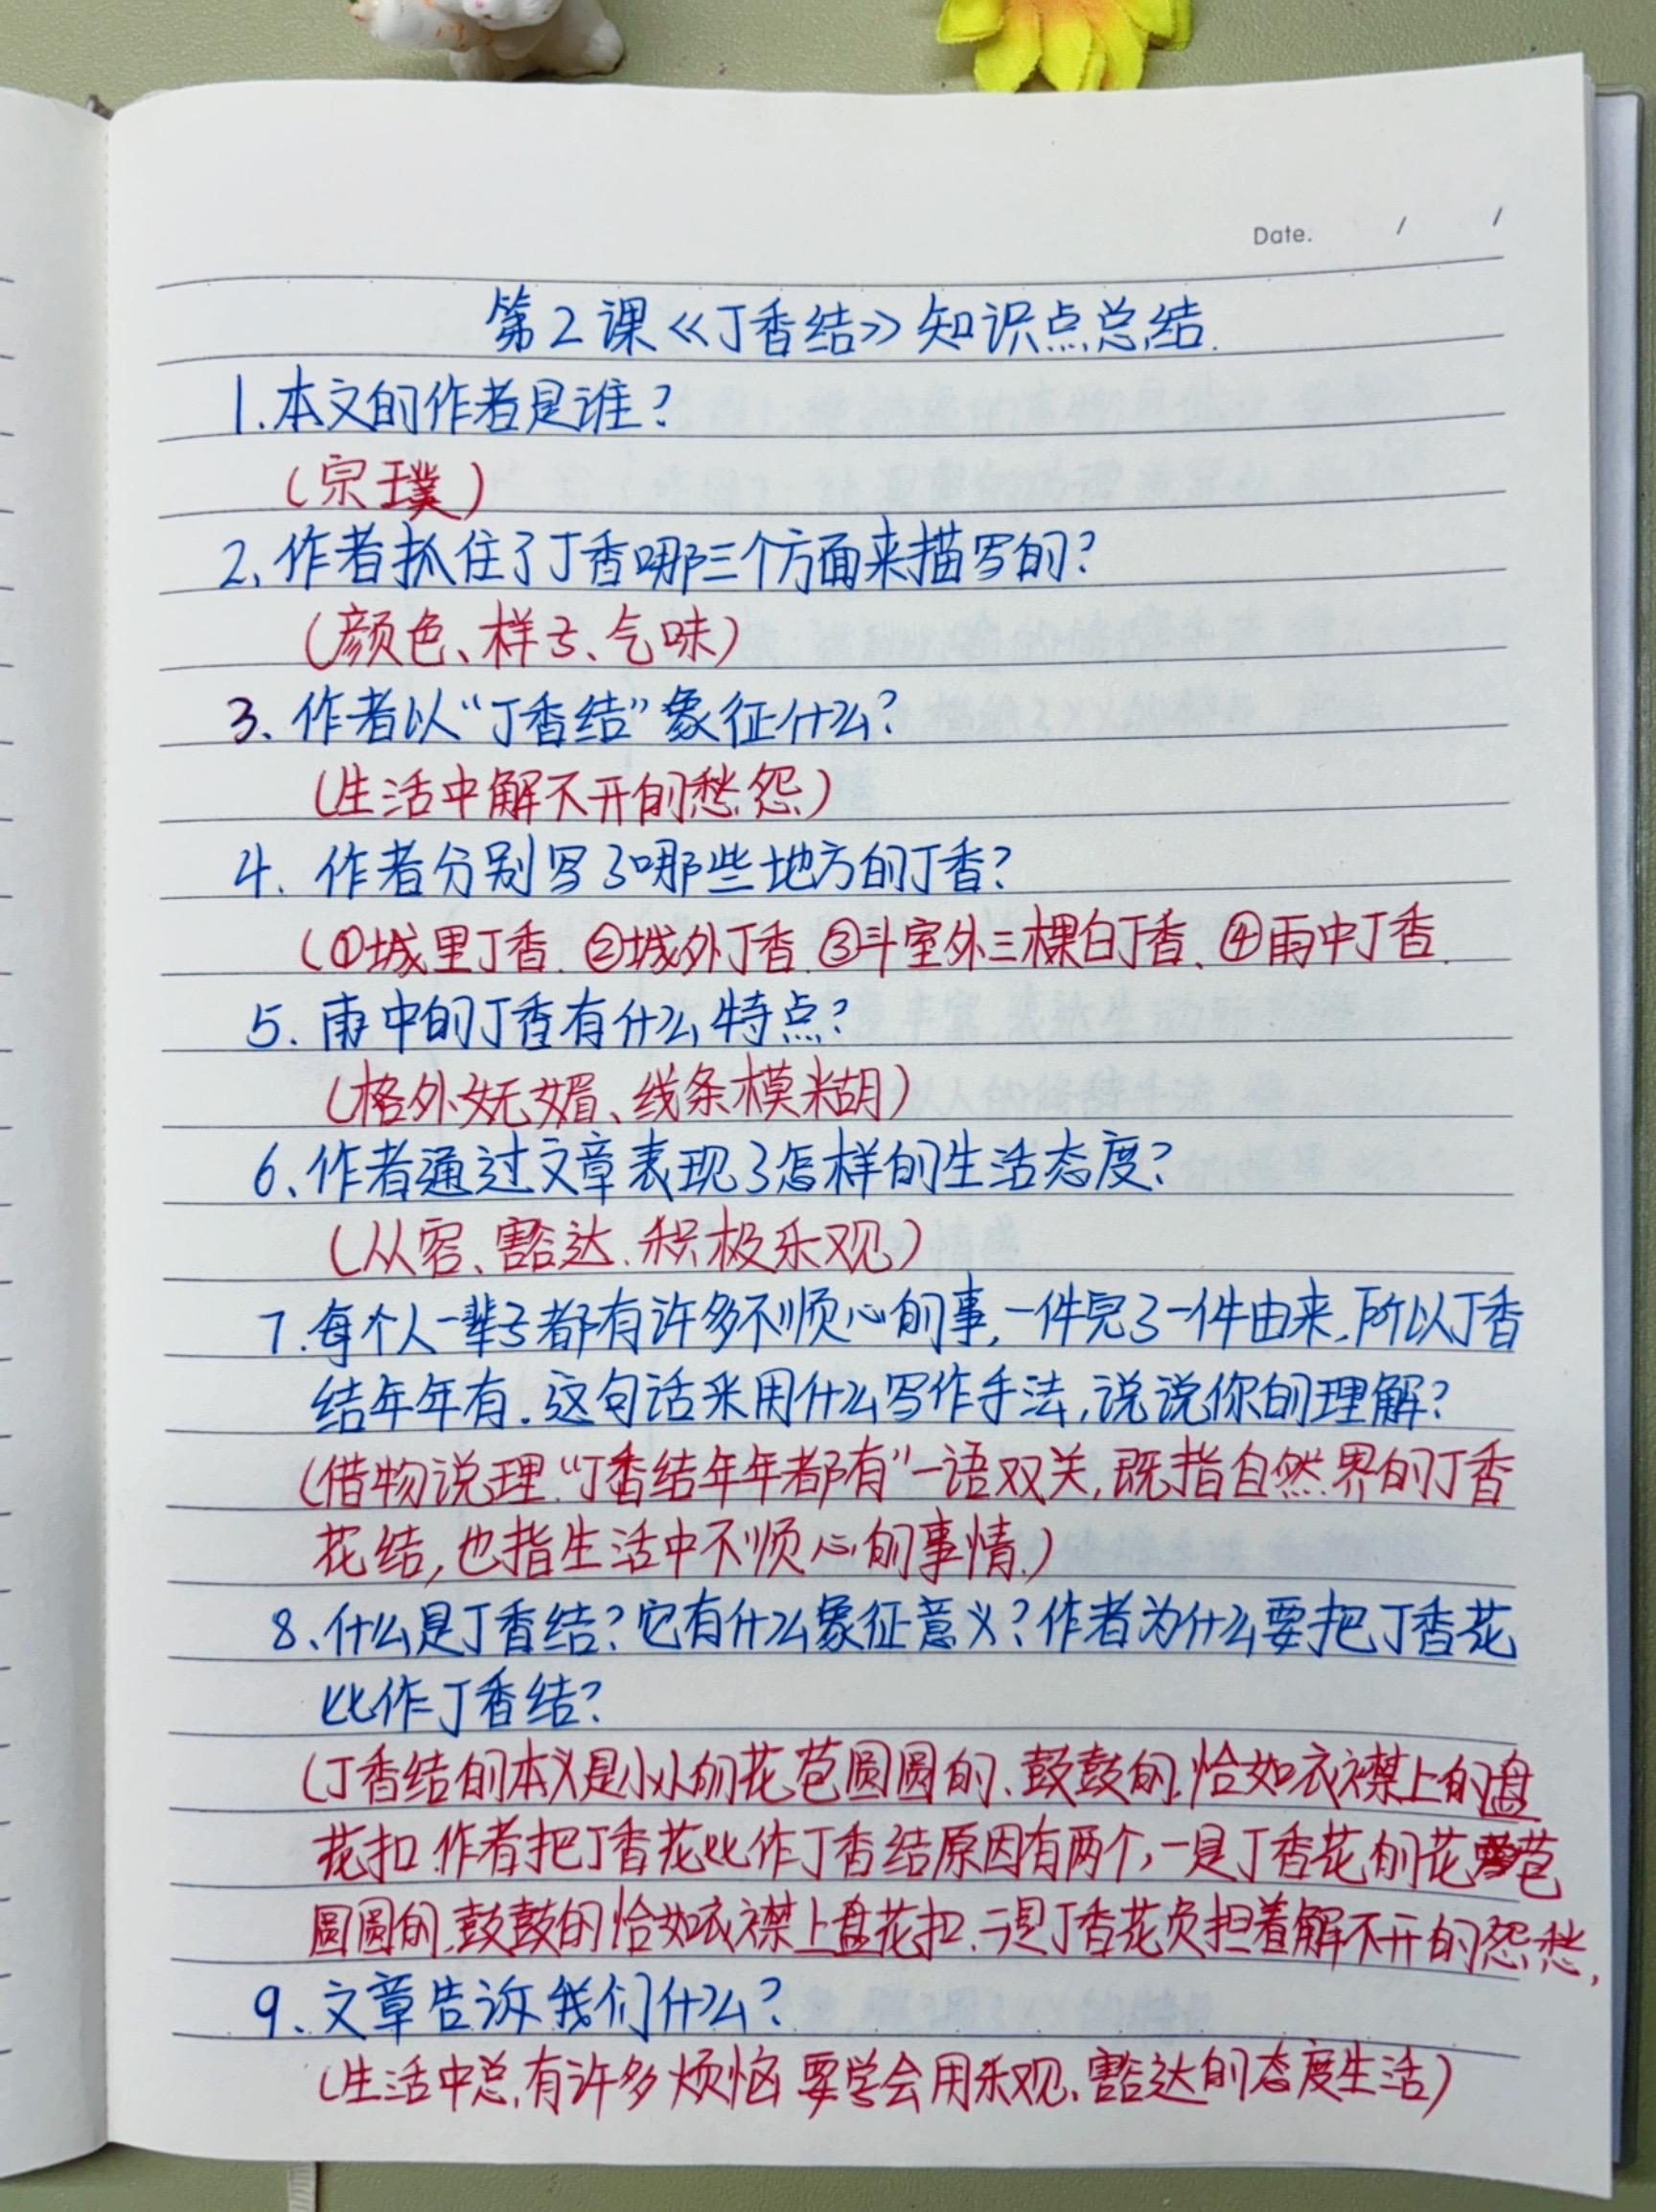 Date. / /
第2课《丁香结》知识点总结.
1.本文的作者是谁?
(宗璞)
2、作者抓住了丁香哪三个方面来描写的?
(颜色、样子、气味)
3、作者以“丁香结”象征什么?
(生活中解不开的愁怨)
4、作者分别写了哪些地方的丁香?
(①城里丁香.②城外丁香.③斗室外三棵白丁香、④雨中丁香.
5、雨中的丁香有什么特点?
(格外妩媚、线条模糊)
6、作者通过文章表现了怎样的生活态度?
(从容、豁达.积极乐观)
7.每个人一辈子都有许多不顺心的事,一件完了一件由来.所以丁香
结年年有.这句话采用什么写作手法,说说你的理解?
(借物说理.“丁香结年年都有”一语双关,既指自然界的丁香
花结,也指生活中不顺心的事情.)
8、什么是丁香结?它有什么象征意义?作者为什么要把丁香花
比作丁香结?
(丁香结的本义是小小的花苞圆圆的、鼓鼓的.恰如衣襟上的盘
花扣.作者把丁香花比作丁香结原因有两个,一是丁香花的花苞
圆圆的.鼓鼓的恰如衣襟上盘花扣.二是丁香花负担着解不开的怨愁,
9、文章告诉我们什么?
(生活中总有许多烦恼要学会用乐观、豁达的态度生活)